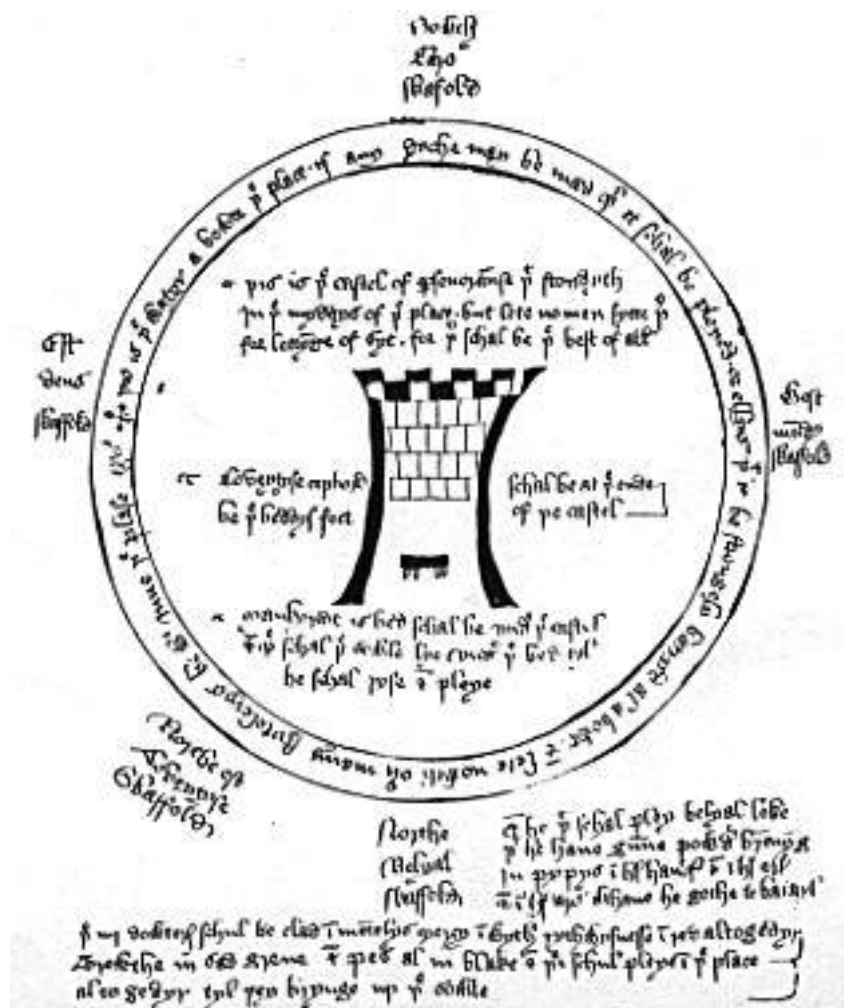 Caro
skafold
þis is þᵉ watyr a bowte þᵉ place. if any dyche may be mad þʳ it schal be pleyed. or ellys þᵗ it be strongely barryd al abowt. & lete nowth ovyr many stytelerys be wᵗ inne þᵉ plase
þis is þᵉ castel of þᵗ stondyth
in þᵉ myddys of þᵉ place. but lete no men sytte þʳ
for lettynge of syt. for þʳ schal be þᵉ best of all
Est
deus
skaffold
West
skaffold
copbord
be þᵉ beddys feet
schal be at þᵉ ende
of þe castel
bed schal be undʳ þᵉ castel
& þʳ schal þᵉ sowle lye undʳ þᵉ bed tyl
he schal ryse & pleye
Northe est
Coveytyse
Skaffold
Northe
Belyal
skaffold
& he þᵗ schal pley belyal loke
þᵗ he have gunne powdʳ brennyng
in pypys ī hys & ī hys
& ī hys ars whane he gothe to batayl
þᵉ iiij dowterys schul be clad ī mentelys mercy ī wyth rythwysnesse ī red altogedyr
Trewthe in sad grene & pes al in blake & þei schul pleye ī þᵉ place
altogedyr tyl þey brynge up þᵉ sowle